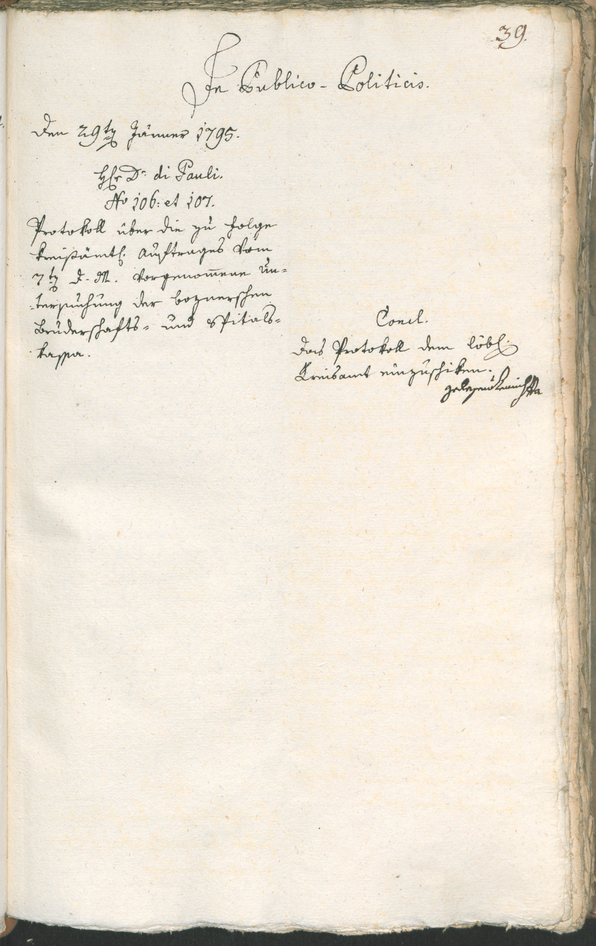 39
In Publico-Politicis.
den 29ten Jänner 1795.
Hr Dr. di Pauli.
No 106: et 107.
Protokoll über die zu folge
kreisämtl. Auftrages vom
7ten d. M. vorgenommene Un-
tersuchung der boznerschen
Bruderschafts- und Spitals-
kassa.
Concl.
Das Protokoll dem löbl.
Kreisamt einzuschiken.